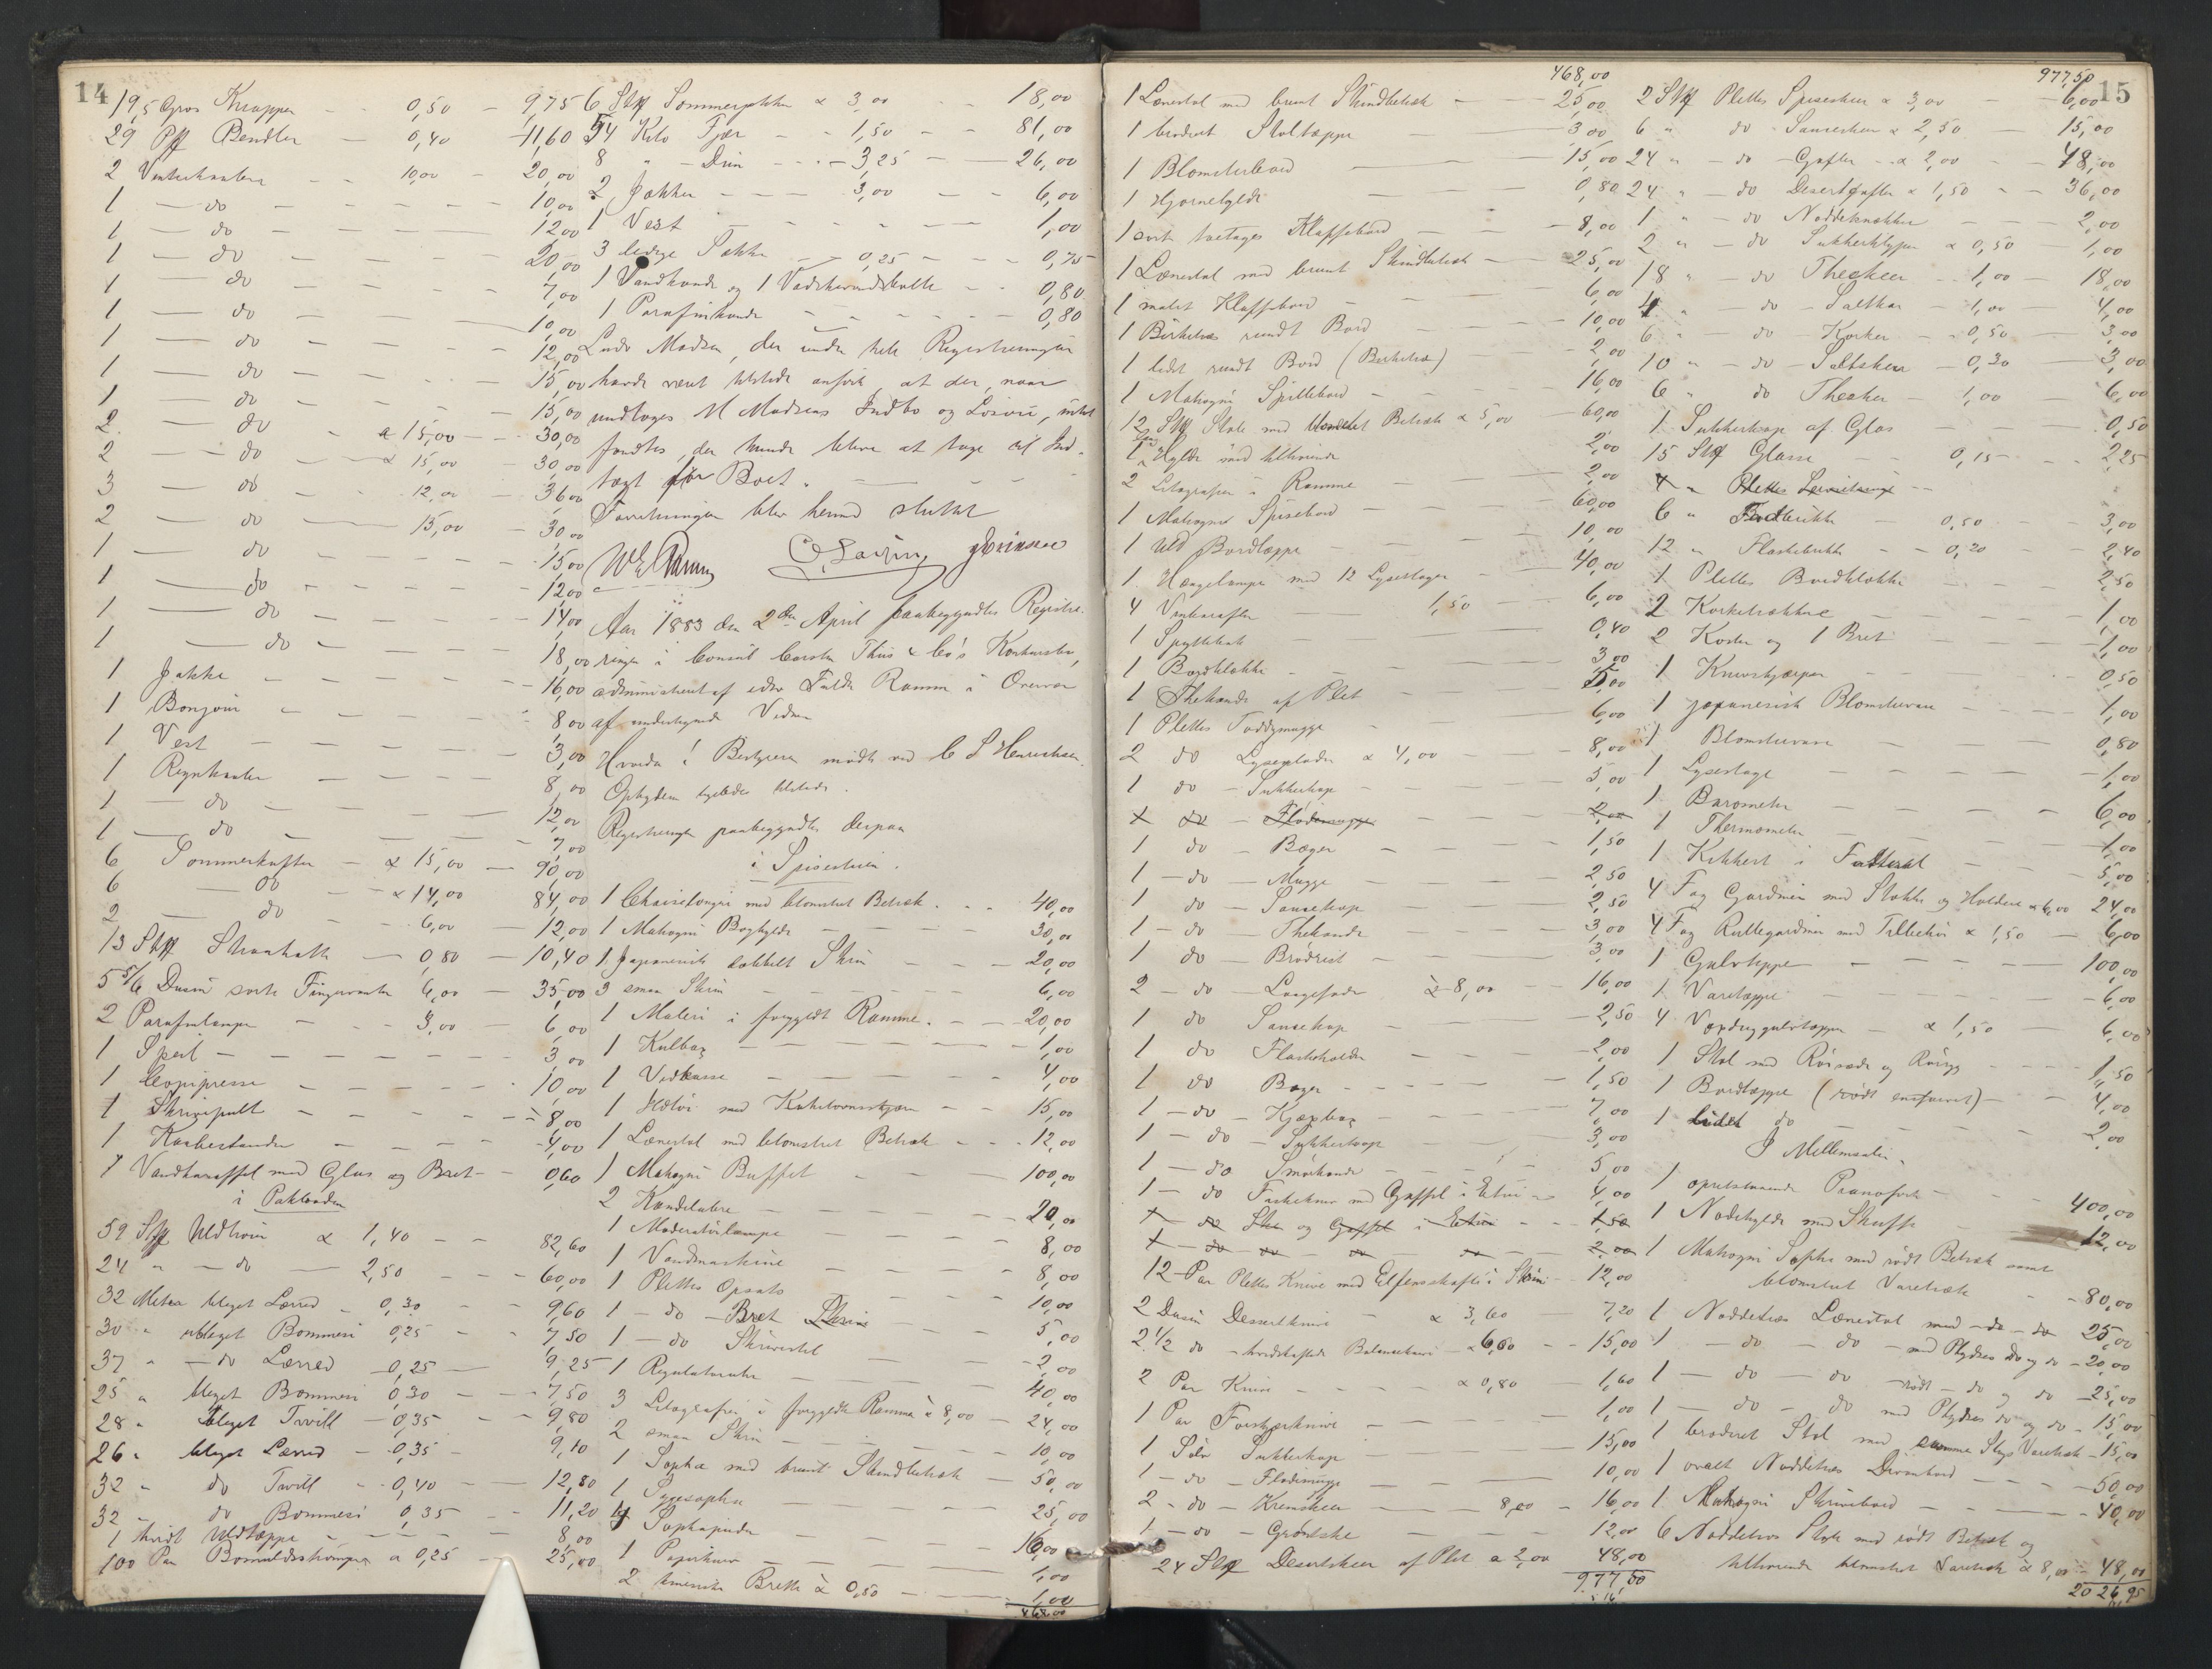 14
19,5 Gros Knapper - - 0,50 - 9,75
29 Pk Bendler - 0,40 - 11,60
2 Vinterkaaber - - 10,00 - 20,00
1 - do - - - - - 10,00
1 - do - - - - - 12,00
1 - do - - - - - 20,00
1 - do - - - - - 7,00
1 - do - - - - - 10,00
1 - do - - - - - 12,00
1 - do - - - - - 15,00
1 - do - - - - - 15,00
2 - do - a 15,00 - - 30,00
2 - do - a 15,00 - 30,00
3 - do - - 12,00 - 36,00
2 - do - 15,00 - 30,00
1 - do - - - - - 15,00
1 - do - - - - - 12,00
1 - do - - - - - 14,00
1 - do - - - - - 18,00
1 Jakke - - - - - 16,00
1 Bonjour - - - - - 8,00
1 Vest - - - - - 3,00
1 Regnkaabe - - - - 8,00
1 - do - - - - - 12,00
1 - do - - - - - 7,00
6 Sommerkufter - a 15,00 - 90,00
6 - do - - a 14,00 84,00
2 - do - - 6,00 - 12,00
13 Stk Straahatte - 0,80 - 10,40
5 5/6 Dusin sorte Fingervanter 6,00 - 35,00
2 Parafinlamper - - 3,00 - 6,00
1 Speil - - - - - 3,00
1 Copipresse - - - - 10,00
1 Skrivepult - - - - - 8,00
1 Kaabestander - - - - 4,00
1 Vandkaraffel med Glas og Bret - 0,60
i Pakboden
59 Stk Uldtrøier a 1,40 - - 82,60
24 " - do - 2,50 - - 60,00
32 Meter bleget Lærred - 0,30 - - 9,60
30 " ubleget Bommesi 0,25 - - 7,50
37 " - do Lærred - 0,25 - 9,25
25 " bleget Bommesi 0,30 - - 7,50
28 " ubleget Tvill - 0,35 - - 9,80
26 " bleget Lærred - 0,35 - 9,10
32 " do Tvill - 0,40 - - 12,80
32 " do Bommesi 0,35 - - 11,20
1 hvidt Uldtæppe - - - - 8,00
100 Par Bomuldsstrømper a 0,25 - 25,00
6 Stk Sommer a 3,00 - - 18,00
54 Kilo Fjær - - 1,50 - - 81,00
8 " - Dun - - - 3,25 - - 26,00
2 Jakker - - - 3,00 - - 6,00
1 Vest - - - - - 1,00
3 ledige Sække - 0,25 - - - 0,75
1 Vandkande og 1 Vadskevandsbolle - - 0,80
1 Parafinkande - - - - - 0,80
Ludv Madsen, der under hele Registreringen
havde været tilstede anførte, at der, naar
undtages M Madsens Indbo og Løsøre, intet
fandtes, der kunde blive at tage til Ind-
tægt for Boet. - - -
Forretningen blev hermed sluttet
Aar 1883 den 2den April paabegyndtes Registre-
ringen i Consul Carsten Thiis & Co's Konkursbo,
administreret af edsv Fuldm Ramm i Overvær
af undertegnede Vidner
Hvorda! Bestyreren mødte ved C S Henrichsen.
Opbyderen ligeledes tilstede.
Registreringen paabegyndtes derpaa
i Spisestuen.
1 Chaiselongue med blomstret Betræk. - - 40,00
1 Mahogni Boghylde - - - 30,00
1 Japanesisk dobbelt Skrin - - - 20,00
3 smaa Skrin - - - - 6,00
1 Maleri i forgyldt Ramme. - - 20,00
1 Kulbax - - - - 1,00
1 Vedkasse - - - - 4,00
1 Ildtøi med Kakelovnsskjærm - - 15,00
1 Lænestol med blomstret Betræk - - 12,00
1 Mahogni Buffet - - - 100,00
2 Kandelabre - - - - 20,00
1 Moderatørlampe - - - 8,00
1 Vandmaskine - - - - 8,00
1 Plettes Opsats - - - - 10,00
1 - do - Bret - - - 5,00
1 - do Skrivestel - - - 2,00
1 Regulatoruhr - - - - 40,00
3 Litografier i forgyldte Ramme à 8,00 - 24,00
2 smaa Skrin - - - - 10,00
1 Sopha med brunt Skindbetræk - 50,00
1 Syesopha - - - - 25,00
4 Sophapuder - - - - 16,00
1 Papirkurv - - - - 1,00
2 kinesiske Bretter à 0,50 - - - 1,00
468,00
15
468,00
1 Lænestol med brunt Skindbetræk - - 25,00
1 broderet Stoltæppe - - 3,00
1 Blomsterbord - - - 15,00
1 Hjørnehylde - - - 0,80
1 sort toetages Klapbord - - 8,00
1 Lænestol med brunt Skindbetræk - - 25,00
1 malet Klapbord - - - 6,00
1 Birketræs rundt Bord - - - 10,00
1 lidet rundt Bord (Birketræ) - - 2,00
1 Mahogni Spillebord - - - 16,00
12 Stk Stole med blomstret Betræk a 5,00 - 60,00
1 liden Hylde med tilhørende - - 2,00
2 Litografier i Ramme - - - 2,00
1 Mahogni Spisebord - - - 60,00
1 Uld Bordtæppe - - - 10,00
1 Hængelampe med 12 Lysestager - - 40,00
4 Vinkarafler - 1,50 - 6,00
1 Spyttebak - - - 0,40
1 Bordklokke - - - 3,00
1 Thekande af Plet - - - 5,00
1 Plettes Toddymugge - - - 6,00
2 do Lyseplader a 4,00 - - 8,00
1 do - Sukkerkop - - - 5,00
1 do - Flødemugge - - - 2,00
1 do - Bæger - - - 1,50
1 - do - Mugge - - - 2,50
1 do - Sausekop - - - 2,50
1 - do - Thekande - - - 3,00
1 do - Brødrist - - - 3,00
2 - do - Laagefade à 8,00 - 16,00
1 do Sausekop - - - 2,50
1 do Flaskeholder - - - 2,00
1 do Bæger - - - - 1,50
1 - do - Kjæxbax - - - 7,00
1 - do - Sukkerkop - - - 3,00
1 - do Smørkande - - - 5,00
1 - do Fiskekniv med Gaffel i Etui - 4,00
1 - do Ske og Gaffel i Etui - - 1,50
1 - do - do - do - do - 2,00
12 Par Plettes Knive med Elfensskafte i Skrin - 12,00
2 Dusin Dessertknive - a 3,60 - 7,20
2 1/2 do - hvidskaftede Balanceknive - a 6,00 - 15,00
2 Par Knive - - - a 0,80 - 1,60
1 Par Forskjærknive - - - 1,00
1 Sølv Sukkerkop - - - 15,00
1 - do - Flødemugge - - - 10,00
2 - do - Kremskeer - - 8,00 - 16,00
1 - do - Grødske - - - 12,00
24 Stk Desertskeer af Plet a 2,00 48,00
977,50
977,50
2 Stk Plettes Spiseskeer a 3,00 - 6,00
6 " do - Sauseskeer a 2,50 - 15,00
24 " - do - Gafler - a 2,00 - - 48,00
24 " - do Desertgafler a 1,50 - - 36,00
1 " - do Nøddeknækker - 2,00
2 " - do Sukkerklyper a 0,50 1,00
18 " - do Theskeer - - 1,00 - 18,00
4 " do - Saltkar 1,00 - 4,00
6 " do - Korker - - 0,50 - 3,00
10 " - do - Saltskeer - 0,30 3,00
6 " do Theskeer - 1,00 - - 6,00
1 Sukkerkop af Glas - - - 0,50
15 Stk Glasse - - 0,15 - - 2,25
4 " Plettes - -
6 " 0,50 - 3,00
12 " Flaskebrikker - - 0,20 - 2,40
1 Plettes Bordklokke - - - 2,50
2 Korketrækkere - - - 1,00
2 Koster og 1 Bret - - - 1,00
1 Knivskjærper - - - 0,50
1 japanesisk Blomstervase - - - 1,00
1 Blomstervase - - - 0,80
1 Lysestage - - - - 1,00
1 Barometer - - - - 6,00
1 Thermometer - - - - 1,00
1 Kikkert i Futteral - - 5,00
4 Fag Gardiner med Stokke og Holdere a 6,00 24,00
4 Fag Rullegardiner med Tilbehør a 1,50 - 6,00
1 Gulvteppe - - - - 100,00
1 Varetæppe - - - - 6,00
4 gulvtæpper - a 1,50 6,00
1 Stol med Rørsæde og Rørryg - - - 1,50
1 Bordtæppe (rødt ensfarvet) - - 4,00
1 lidet do - - - 2,00
I Mellemsalen.
1 opretstaaende Pianoforte - - - 400,00
1 Nodehylde med Skuffe 12,00
1 Mahogni Sopha med rødt Betræk samt
blomstret Varetræk - - 80,00
1 Nøddetræs Lænestol med - do - do 25,00
1 - do - do - med Plydses do og do - 20,00
1 - do - do - rødt - do og do - 25,00
1 - do - do med Plydses do og do - 15,00
1 broderet Stol med samme Slags Varetræk - 15,00
1 ovalt Nøddetræs Divanbord - - - 50,00
1 Mahogni Skrivebord - - - 40,00
6 Nøddetræs Stole med rødt Betræk og
tilhørende blomstret Varetræk à 8,00 - 48,00
2026,95